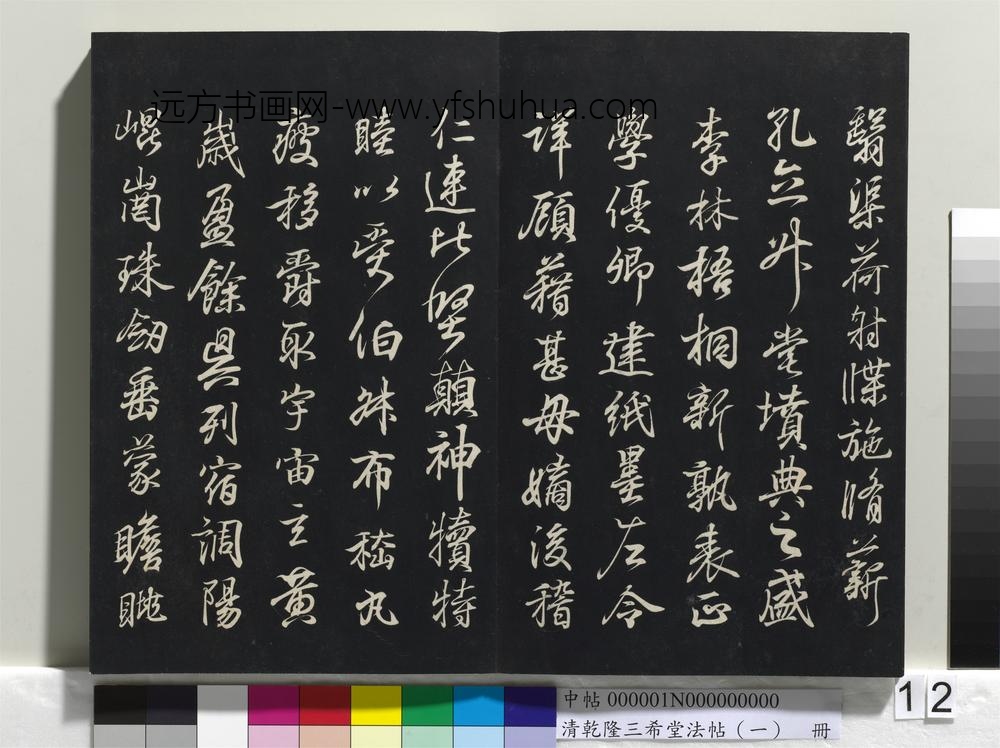 远方书画网-www.yfshuhua.com
翳渠荷射牒施脩薪
孔立升堂墳典之盛
李林梧桐新孰表正
學優卿建紙墨左令
詳顧藉甚毋嫡後稽
仁連比堅顛神犢特
睦以受伯叔布嵇丸
疲移爵取宇宙玄黃
歲盈餘具列宿調陽
崐崗珠劒垂蒙瞻眺
中帖 000001N000000000
清乾隆三希堂法帖（一） 冊
12